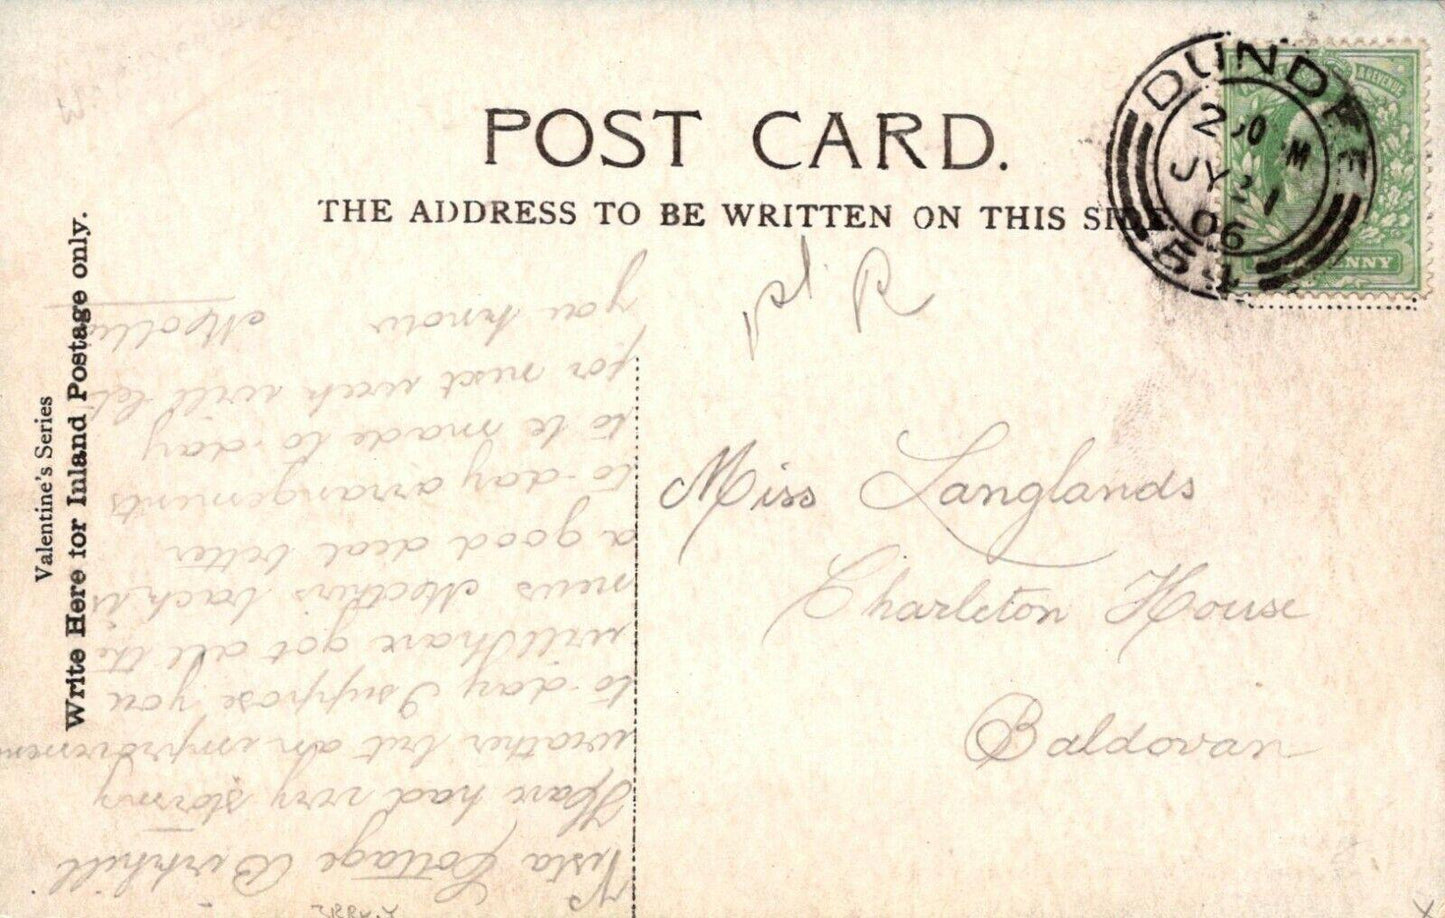 POST CARD.
THE ADDRESS TO BE WRITTEN ON THIS SIDE.
Valentine's Series
Write Here for Inland Postage only.
DUNDEE
JY 21
06
54
Miss Langlands
Charleton House
Baldovan
Vista Cottage Birkhill
Have had very stormy
weather but an improvement
to-day I suppose you
will have got all the
news Mother's back is
a good deal better
to-day arrangements
to be made to-day
for next week will let
you know Mollie